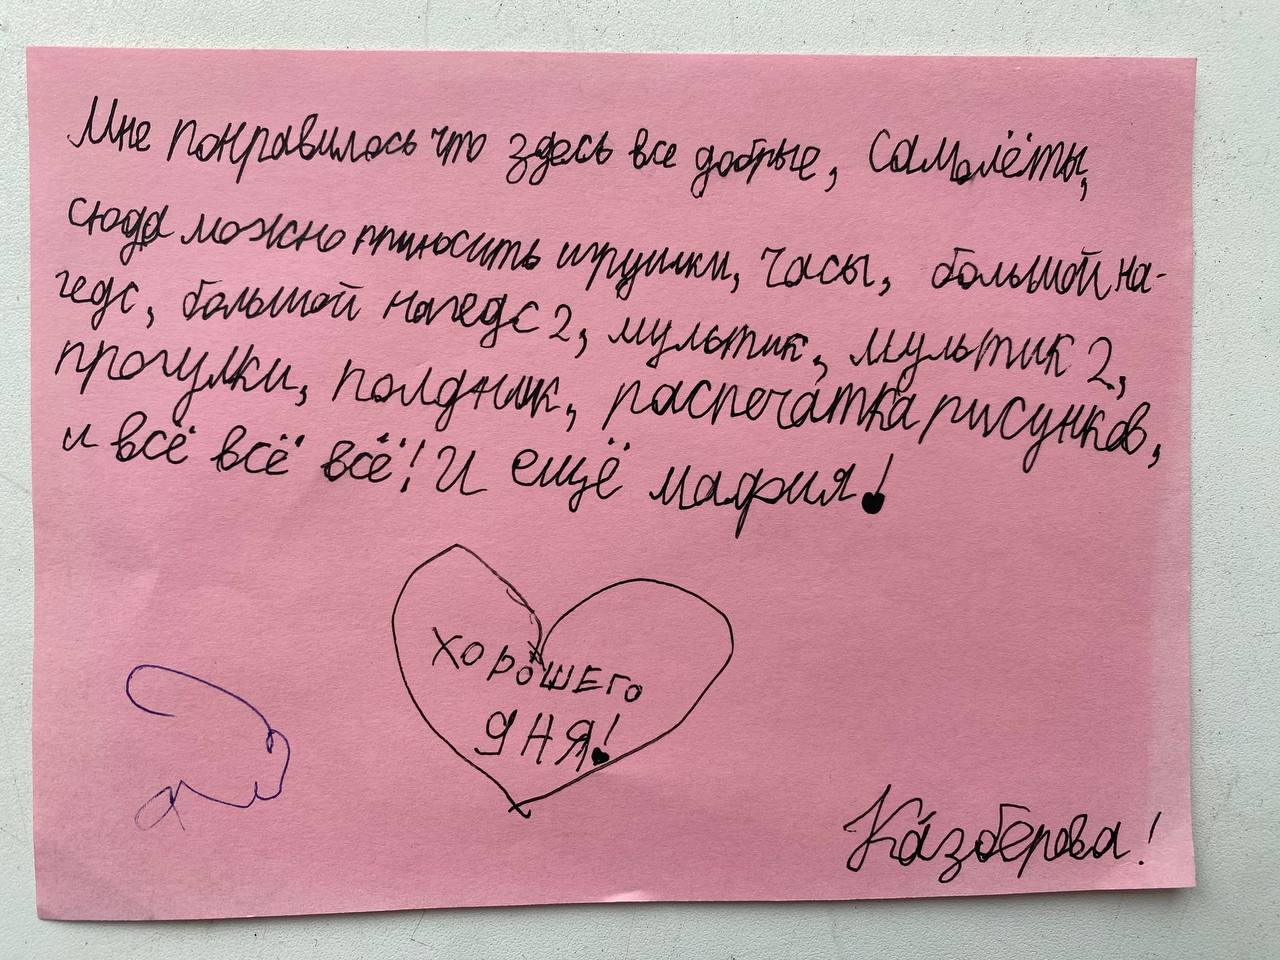 Мне понравилось что здесь все добрые, самолёты,
сюда можно приносить игрушки, часы, большой на-
гедс, большой нагедс 2, мультик, мультик 2,
прогулки, полдник, распечатка рисунков,
и всё всё всё! И ещё мафия!
ХОРОШЕГО
ДНЯ!
Казберова!